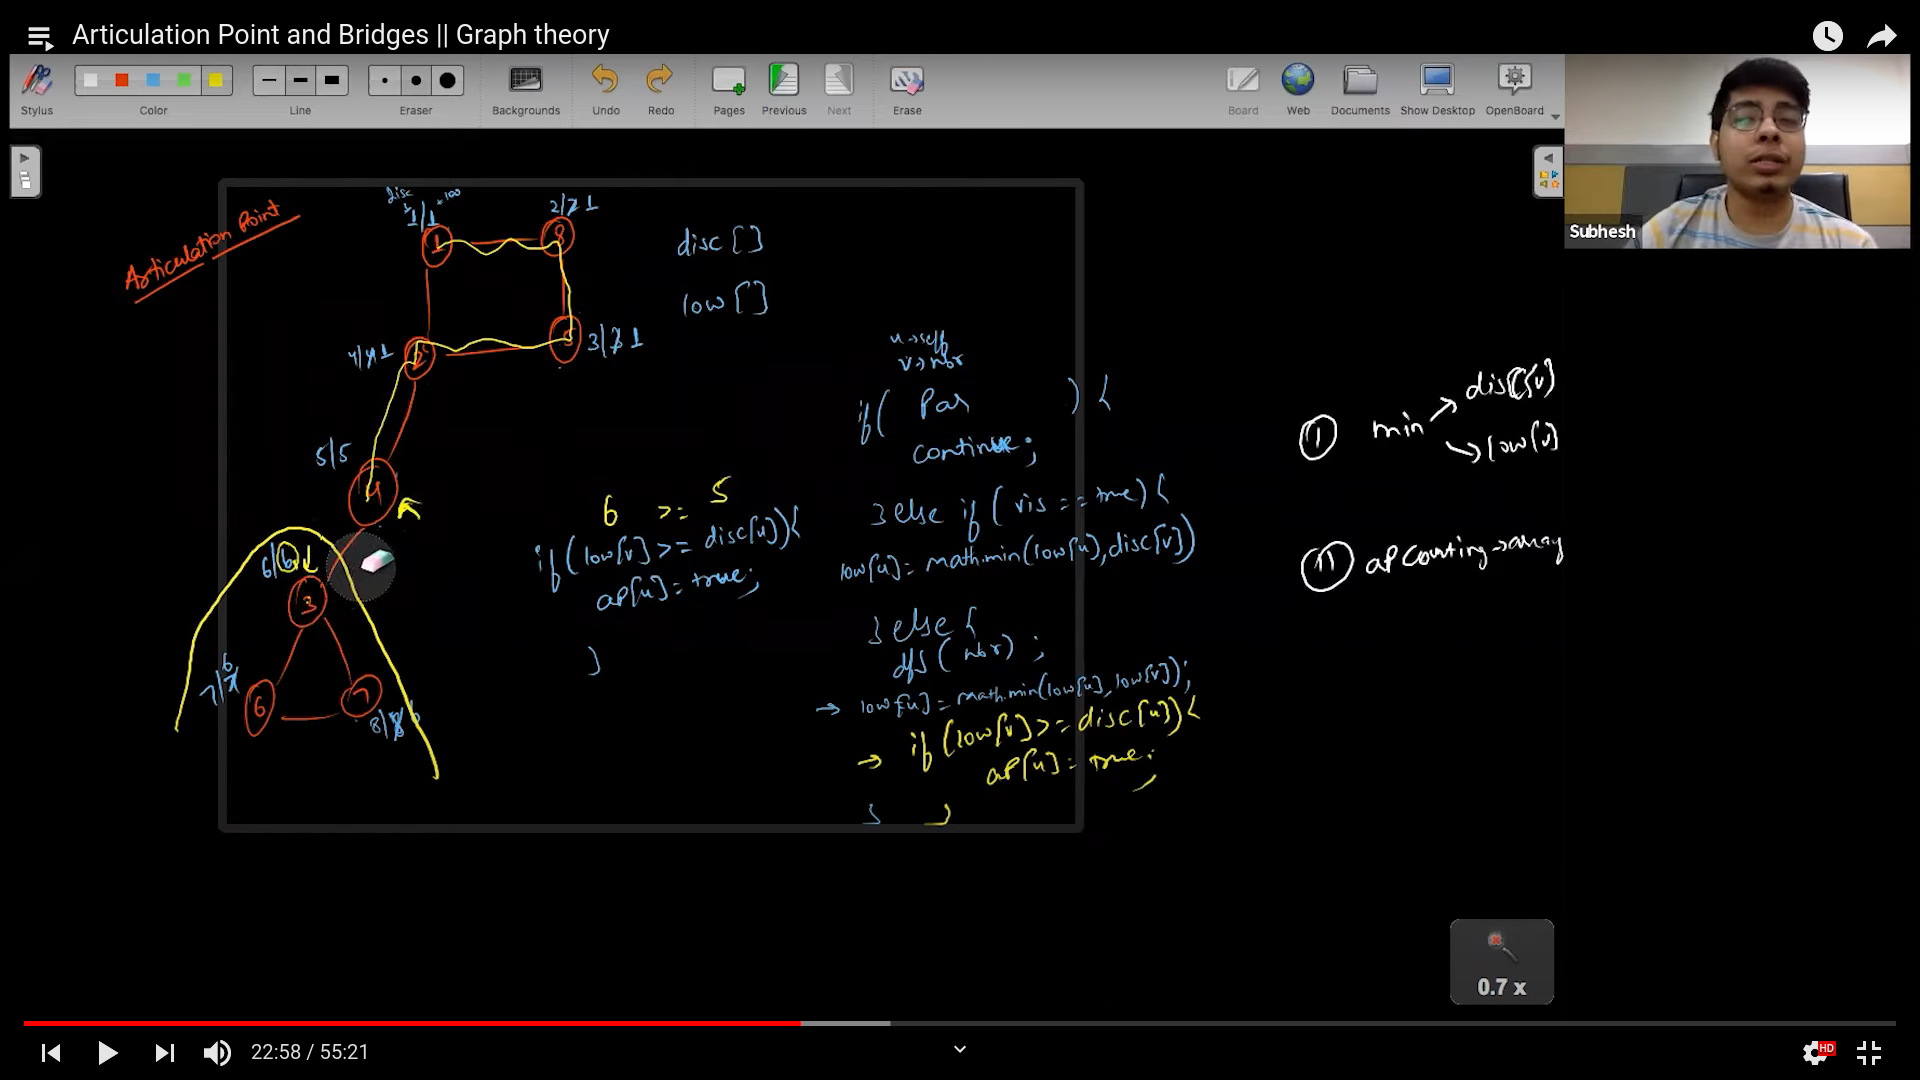 Articulation Point and Bridges || Graph theory
Stylus
Color
Line
Eraser
Backgrounds
Undo
Redo
Pages
Previous
Next
Erase
Board
Web
Documents
Show Desktop
OpenBoard
Subhesh
Articulation Point
disc
1/1
100
1
8
2/2 1
disc []
low []
2
4/4 1
5
3/3 1
5/5
4
6/6
3
7/7 6
6
7
8/8 6
6 >= 5
if(low[v] >= disc[u]){
ap[u] = true;
}
u→self
v→nbr
if( Par ) {
continue;
} else if ( vis == true) {
low[u] = math.min(low[u], disc[v])
} else {
dfs ( nbr) ;
→ low[u] = math.min(low[u], low[v]);
→ if (low[v] >= disc[u]) {
ap[u] = true;
} }
I min → disc[v]
→ low[v]
II ap counting → array
0.7 x
22:58 / 55:21
HD